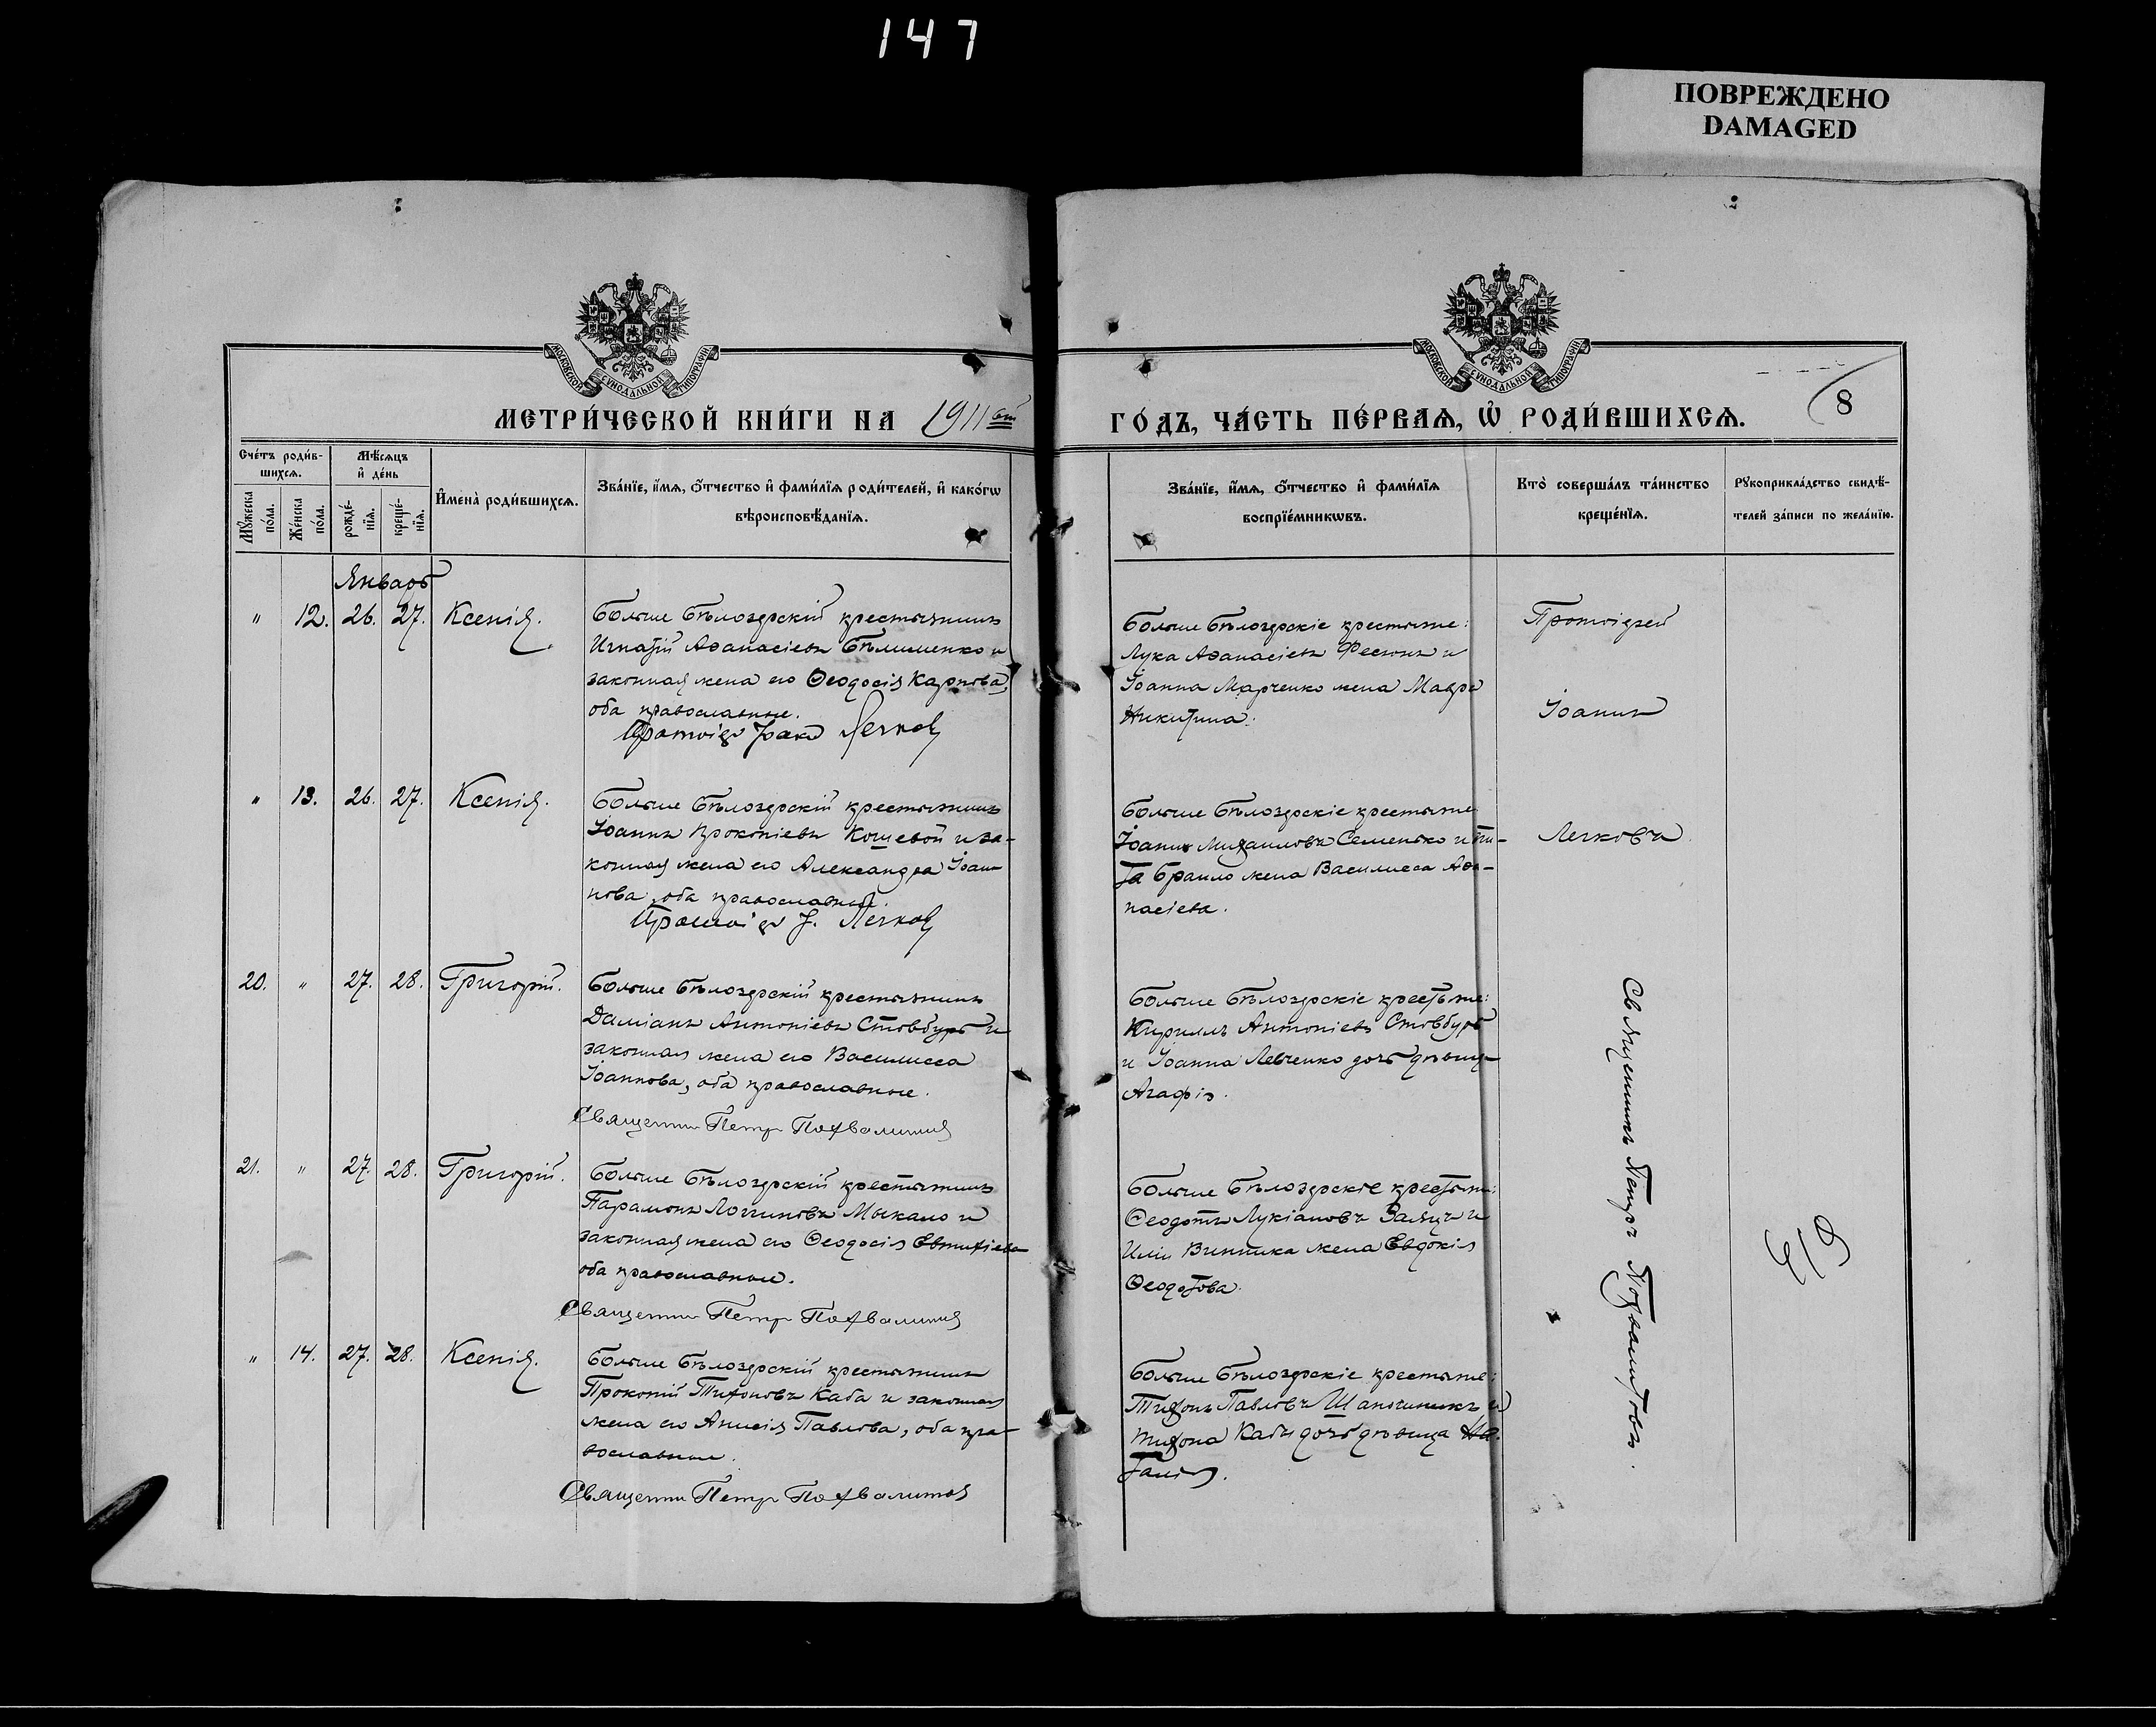 147
ПОВРЕЖДЕНО
DAMAGED
МОСКОВСКОЙ СУНОДАЛЬНОЙ ТИПОГРАФІИ
МОСКОВСКОЙ СУНОДАЛЬНОЙ ТИПОГРАФІИ
МЕТРИ́ЧЕСКОЙ КНИ́ГИ НА 1911 ый
ГО́ДЪ, ЧА́СТЬ ПЕ́РВАѦ, Ѡ РОДИ́ВШИХСѦ.
8
Сче́тъ роди́в-
шихсѧ.
Мѣ́сѧцъ
и҆ де́нь
Мꙋ́жеска по́ла.
Же́нска по́ла.
рожде́-
нїѧ.
креще́-
нїѧ.
И҆мена̀ роди́вшихсѧ.
Зва́нїе, и҆́мѧ, ѻ҆́тчество и҆ фами́лїѧ роди́телей, и҆ како́гѡ
вѣроисповѣ́данїѧ.
Зва́нїе, и҆́мѧ, ѻ҆́тчество и҆ фами́лїѧ
воспрїе́мникѡвъ.
Кто̀ соверша́лъ та́инство
креще́нїѧ.
Рꙋкоприкла́дство свидѣ́-
телей за́писи по жела́нїю.
Январь
" 12. 26. 27. Ксенія.
Больше Бѣлозерскій крестьянинъ
Игнатій Аѳанасіевъ Бѣлименко и
законная жена его Ѳеодосія Карпова,
оба православные.
Протоіер Іоанн Легков
Больше Бѣлозерскіе крестьяне:
Лука Аѳанасіевъ Фесюнъ и
Іоанна Марченко жена Мавра
Никитина.
Протоіерей
Іоаннъ
Легковъ
" 13. 26. 27. Ксенія.
Больше Бѣлозерскій крестьянинъ
Іоаннъ Прокопіевъ Кошевой и за-
конная жена его Александра Іоан-
нова, оба православные.
Протоіер І. Легков
Больше Бѣлозерскіе крестьяне
Іоаннъ Михаиловъ Семенько и
Браило жена Василисса Аѳа-
насіева.
20. " 27. 28. Григорій.
Больше Бѣлозерскій крестьянинъ
Даміанъ Антоніевъ Стовбуръ и
законная жена его Василисса
Іоаннова, оба православные.
Священник Петр Похвалитов
Больше Бѣлозерскіе крестьяне:
Кириллъ Антоніевъ Стовбуръ
и Іоанна Левченко дочь дѣвица
Агафія.
Священникъ Петръ Похвалитовъ.
21. " 27. 28. Григорій.
Больше Бѣлозерскій крестьянинъ
Парамонъ Логгиновъ Мыкало и
законная жена его Ѳеодосія Евтихіева
оба православные.
Священник Петр Похвалитов
Больше Бѣлозерскіе крестьяне:
Ѳеодотъ Лукіановъ Заяцъ и
Иліи Винника жена Евдокія
Ѳеодотова.
" 14. 27. 28. Ксенія.
Больше Бѣлозерскій крестьянинъ
Прокопій Тихоновъ Каба и законная
жена его Анисія Павлова, оба пра-
вославные.
Священник Петр Похвалитов
Больше Бѣлозерскіе крестьяне:
Тихонъ Павловъ Шапочникъ и
Тихона Кабы дочь дѣвица На-
талія.